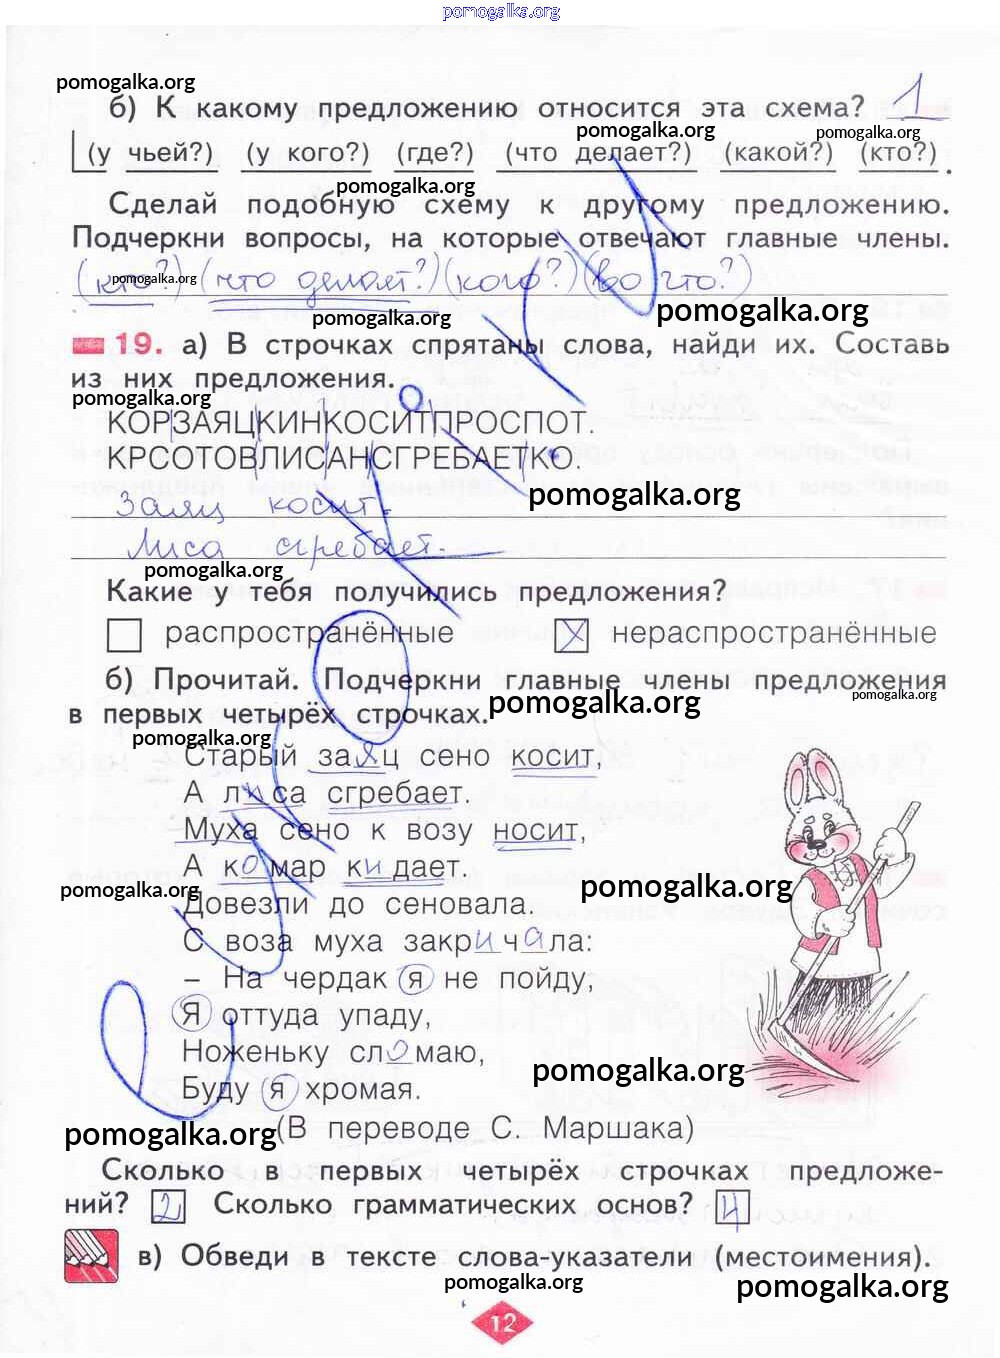 pomogalka.org
pomogalka.org
б) К какому предложению относится эта схема? 1
pomogalka.org pomogalka.org
(у чьей?) (у кого?) (где?) (что делает?) (какой?) (кто?).
pomogalka.org
Сделай подобную схему к другому предложению.
Подчеркни вопросы, на которые отвечают главные члены.
(кто?) (что делает?) (кого?) (во что?)
pomogalka.org
pomogalka.org pomogalka.org
19. а) В строчках спрятаны слова, найди их. Составь
из них предложения.
pomogalka.org
КОРЗАЯЦКИНКОСИТПРОСПОТ.
КРСОТОВЛИСАНСГРЕБАЕТКО.
pomogalka.org
Заяц косит.
Лиса сгребает.
pomogalka.org
Какие у тебя получились предложения?
распространённые X нераспространённые
б) Прочитай. Подчеркни главные члены предложения
pomogalka.org pomogalka.org
в первых четырёх строчках.
pomogalka.org
Старый заяц сено косит,
А лиса сгребает.
Муха сено к возу носит,
А комар кидает.
pomogalka.org pomogalka.org
Довезли до сеновала.
С воза муха закричала:
– На чердак я не пойду,
Я оттуда упаду,
Ноженьку сломаю,
pomogalka.org
Буду я хромая.
pomogalka.org
(В переводе С. Маршака)
Сколько в первых четырёх строчках предложе-
ний? 2 Сколько грамматических основ? 4
в) Обведи в тексте слова-указатели (местоимения).
pomogalka.org pomogalka.org
12